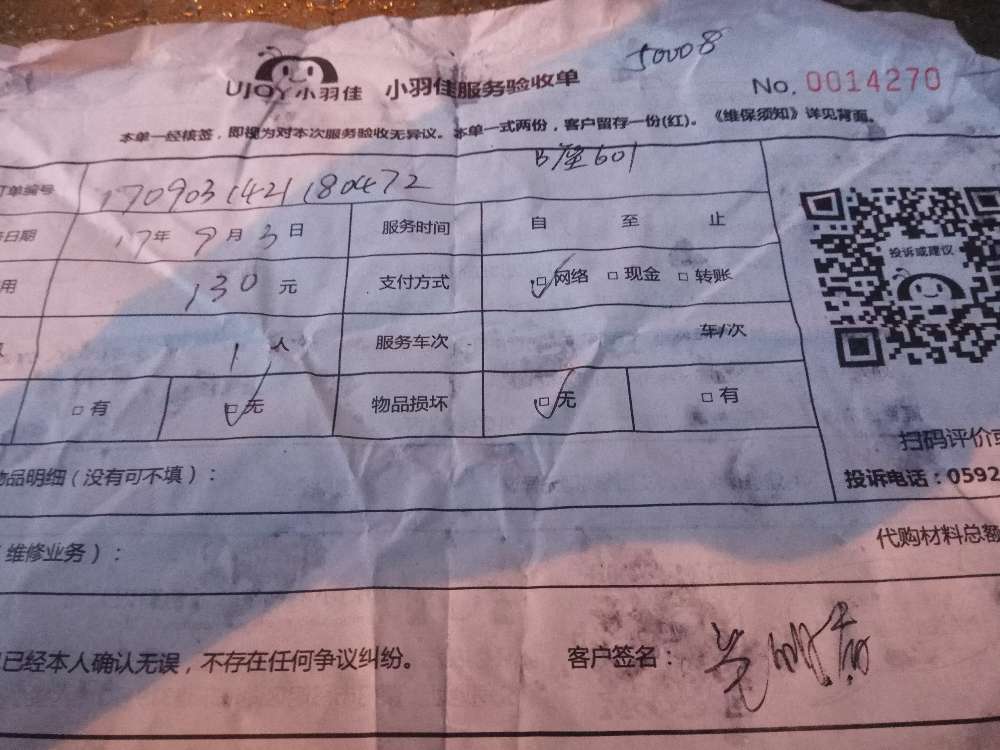 50008
UJOY小羽佳 小羽佳服务验收单 No. 0014270
本单一经核签，即视为对本次服务验收无异议。本单一式两份，客户留存一份(红)。《维保须知》详见背面。
B座601
订单编号 1709031421180472
日期 17年9月3日 服务时间 自 至 止
用 130元 支付方式 网络 现金 转账
1人 服务车次 车/次
有 无 物品损坏 无 有
投诉或建议
扫码评价
物品明细（没有可不填）：
投诉电话：0592
维修业务）：
代购材料总额
已经本人确认无误，不存在任何争议纠纷。 客户签名：